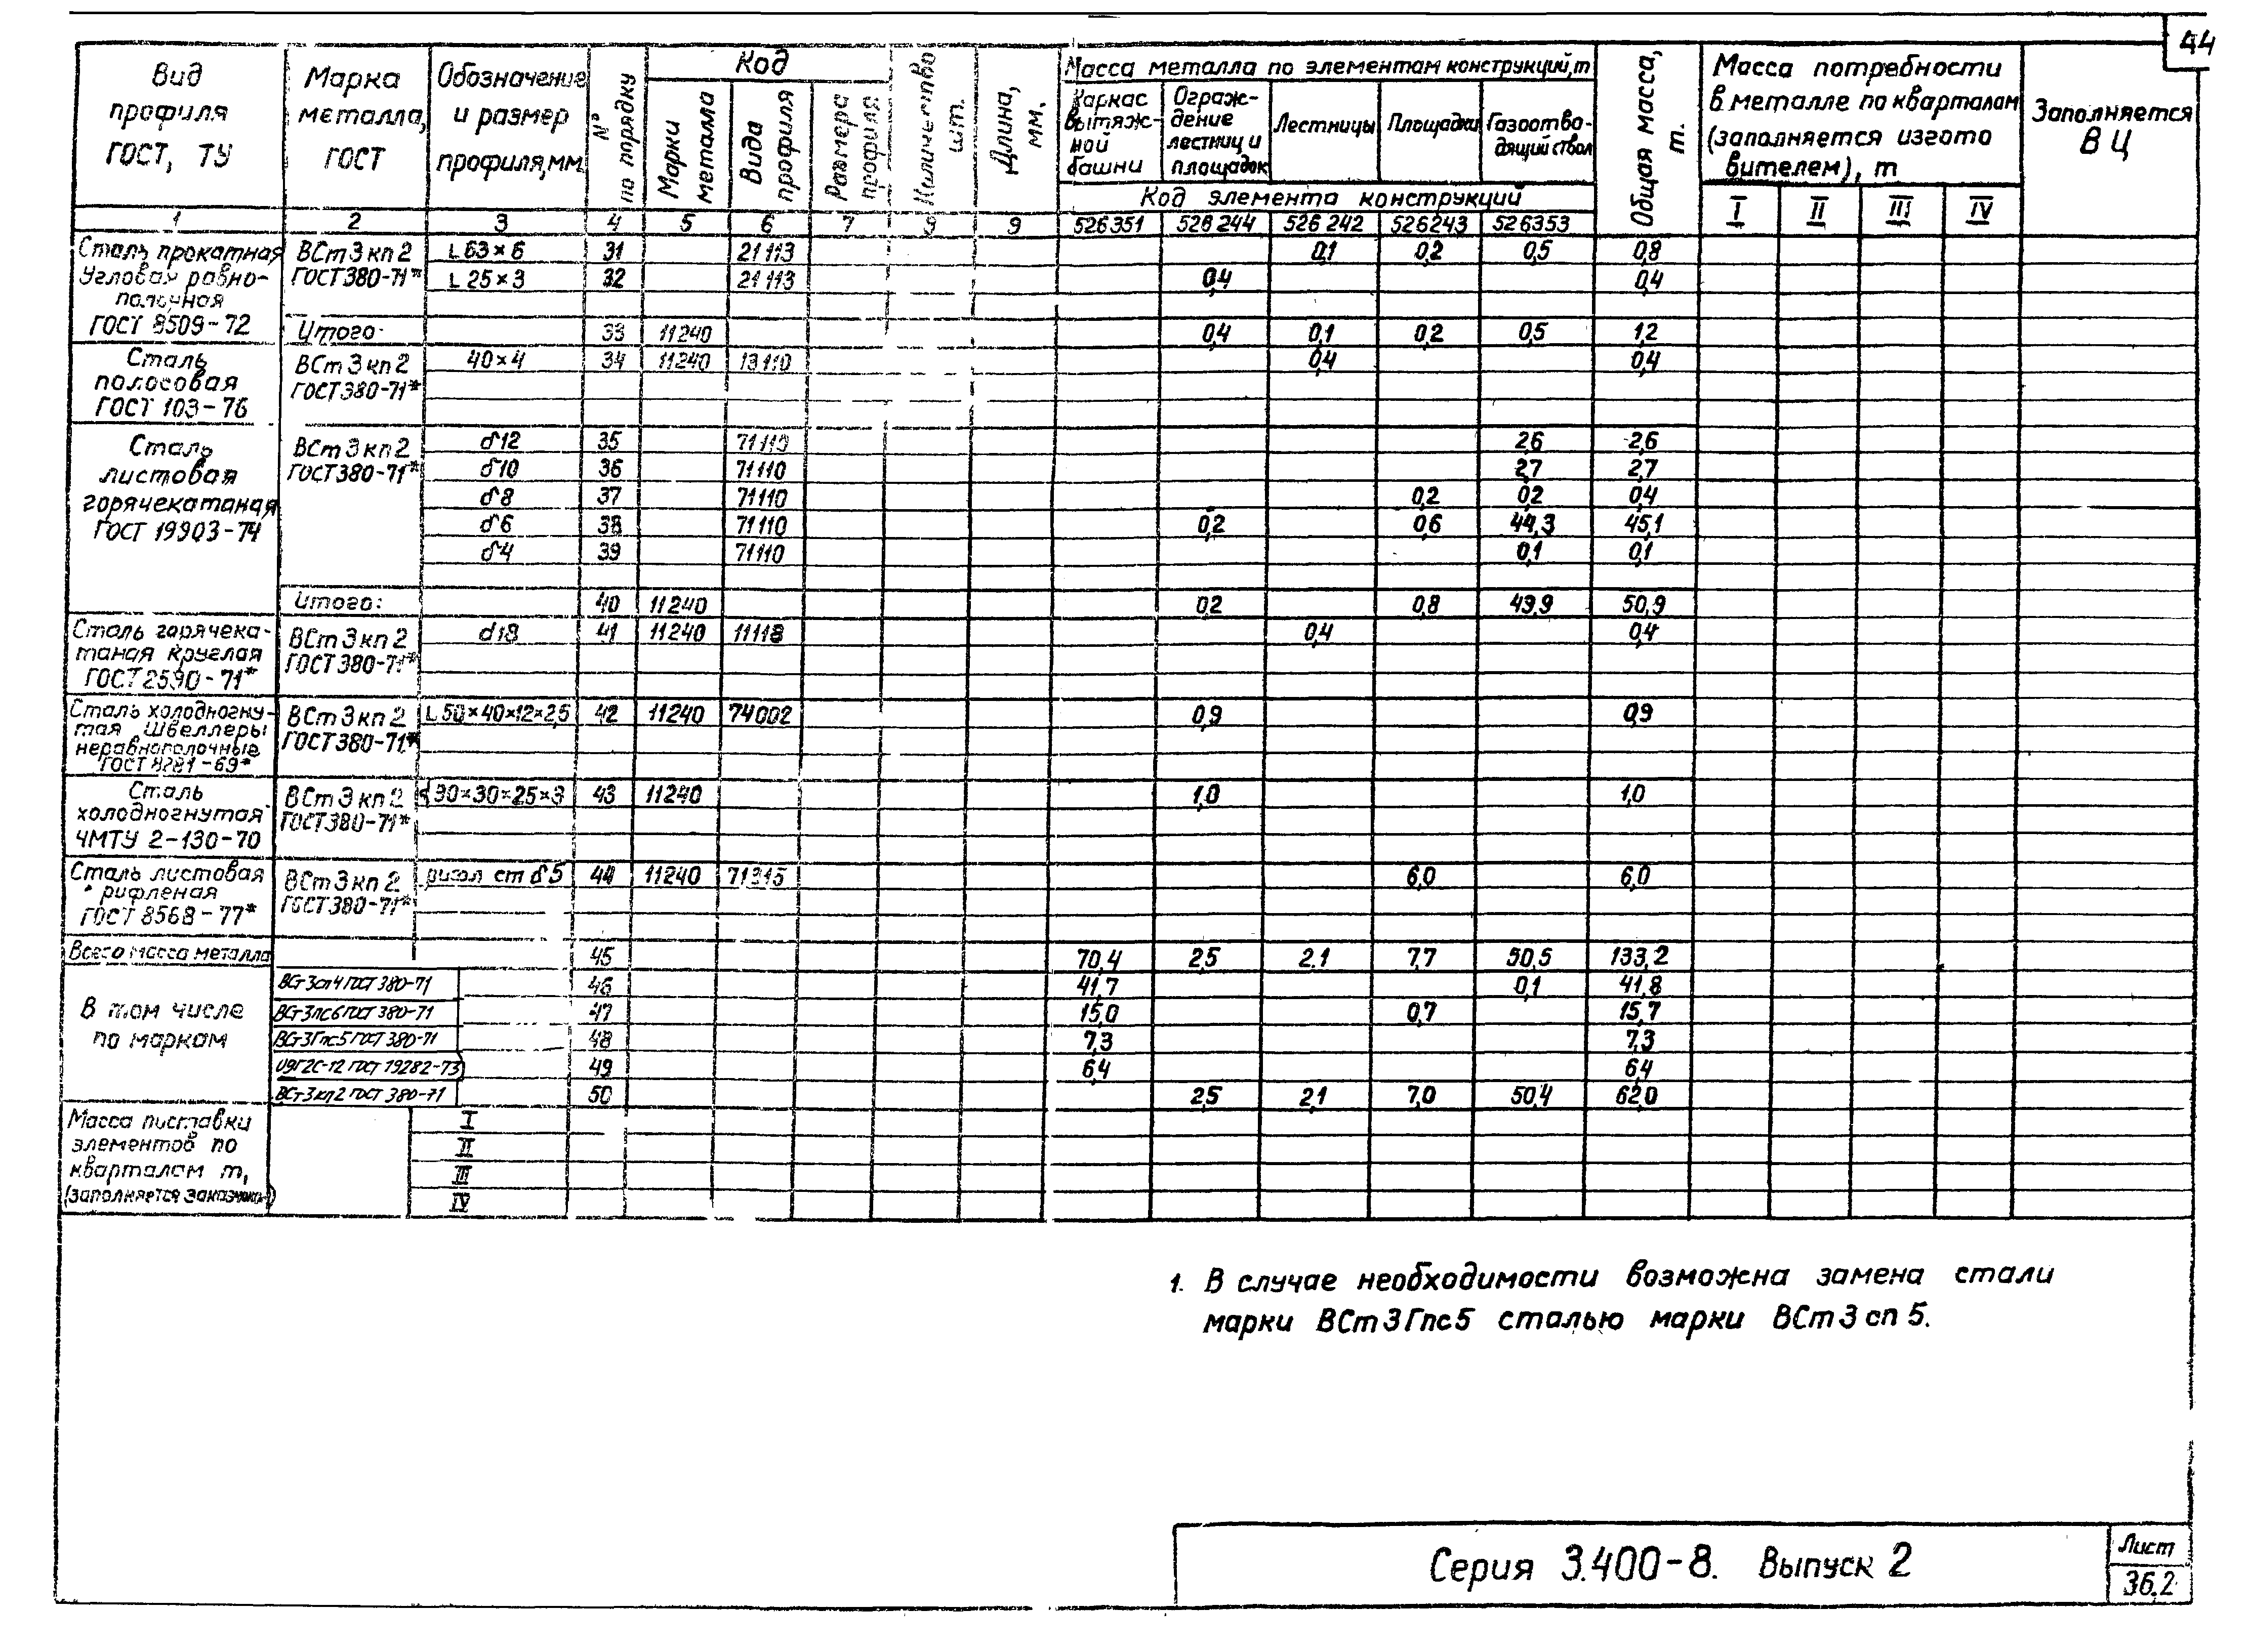 44
Вид профиля ГОСТ, ТУ
Марка металла, ГОСТ
Обозначение и размер профиля, мм.
№ по порядку
Код
Марки металла
Вида профиля
Размера профиля
Количество шт.
Длина, мм.
Масса металла по элементам конструкций, т
Каркас вытяжной башни
Ограждение лестниц и площадок
Лестницы
Площадки
Газоотводящий ствол
Код элемента конструкций
Общая масса, т.
Масса потребности в металле по кварталам (заполняется изготовителем), т
I II III IV
Заполняется ВЦ
1 2 3 4 5 6 7 8 9 526351 526244 526242 526243 526353
Сталь прокатная угловая равнополочная ГОСТ 8509-72
ВСт3кп2 ГОСТ380-71*
L 63×6 31 21113 0,1 0,2 0,5 0,8
L 25×3 32 21113 0,4 0,4
Итого: 33 11240 0,4 0,1 0,2 0,5 1,2
Сталь полосовая ГОСТ 103-76
ВСт3кп2 ГОСТ380-71*
40×4 34 11240 13110 0,4 0,4
Сталь листовая горячекатаная ГОСТ 19903-74
ВСт3кп2 ГОСТ380-71*
δ12 35 71110 2,6 2,6
δ10 36 71110 2,7 2,7
δ8 37 71110 0,2 0,2 0,4
δ6 38 71110 0,2 0,6 44,3 45,1
δ4 39 71110 0,1 0,1
Итого: 40 11240 0,2 0,8 49,9 50,9
Сталь горячекатаная круглая ГОСТ 2590-71*
ВСт3кп2 ГОСТ380-71*
d18 41 11240 11118 0,4 0,4
Сталь холодногнутая швеллеры неравнополочные ГОСТ 8281-69*
ВСт3кп2 ГОСТ380-71*
L 50×40×12×2,5 42 11240 74002 0,9 0,9
Сталь холодногнутая ЧМТУ 2-130-70
ВСт3кп2 ГОСТ380-71*
90×30×25×3 43 11240 1,0 1,0
Сталь листовая рифленая ГОСТ 8568-77*
ВСт3кп2 ГОСТ380-71*
ст δ5 44 11240 71315 6,0 6,0
Всего масса металла 45 70,4 2,5 2.1 7,7 50,5 133,2
В том числе по маркам
ВСт3сп4 ГОСТ 380-71 46 41,7 0,1 41,8
ВСт3пс6 ГОСТ 380-71 47 15,0 0,7 15,7
ВСт3Гпс5 ГОСТ 380-71 48 7,3 7,3
09Г2С-12 ГОСТ 19282-73 49 6,4 6,4
ВСт3кп2 ГОСТ 380-71 50 2,5 2,1 7,0 50,4 62,0
Масса поставки элементов по кварталам т, (заполняется заказчиком)
I
II
III
IV
1. В случае необходимости возможна замена стали
марки ВСт3Гпс5 сталью марки ВСт3сп5.
Серия 3.400-8. Выпуск 2
Лист
36.2